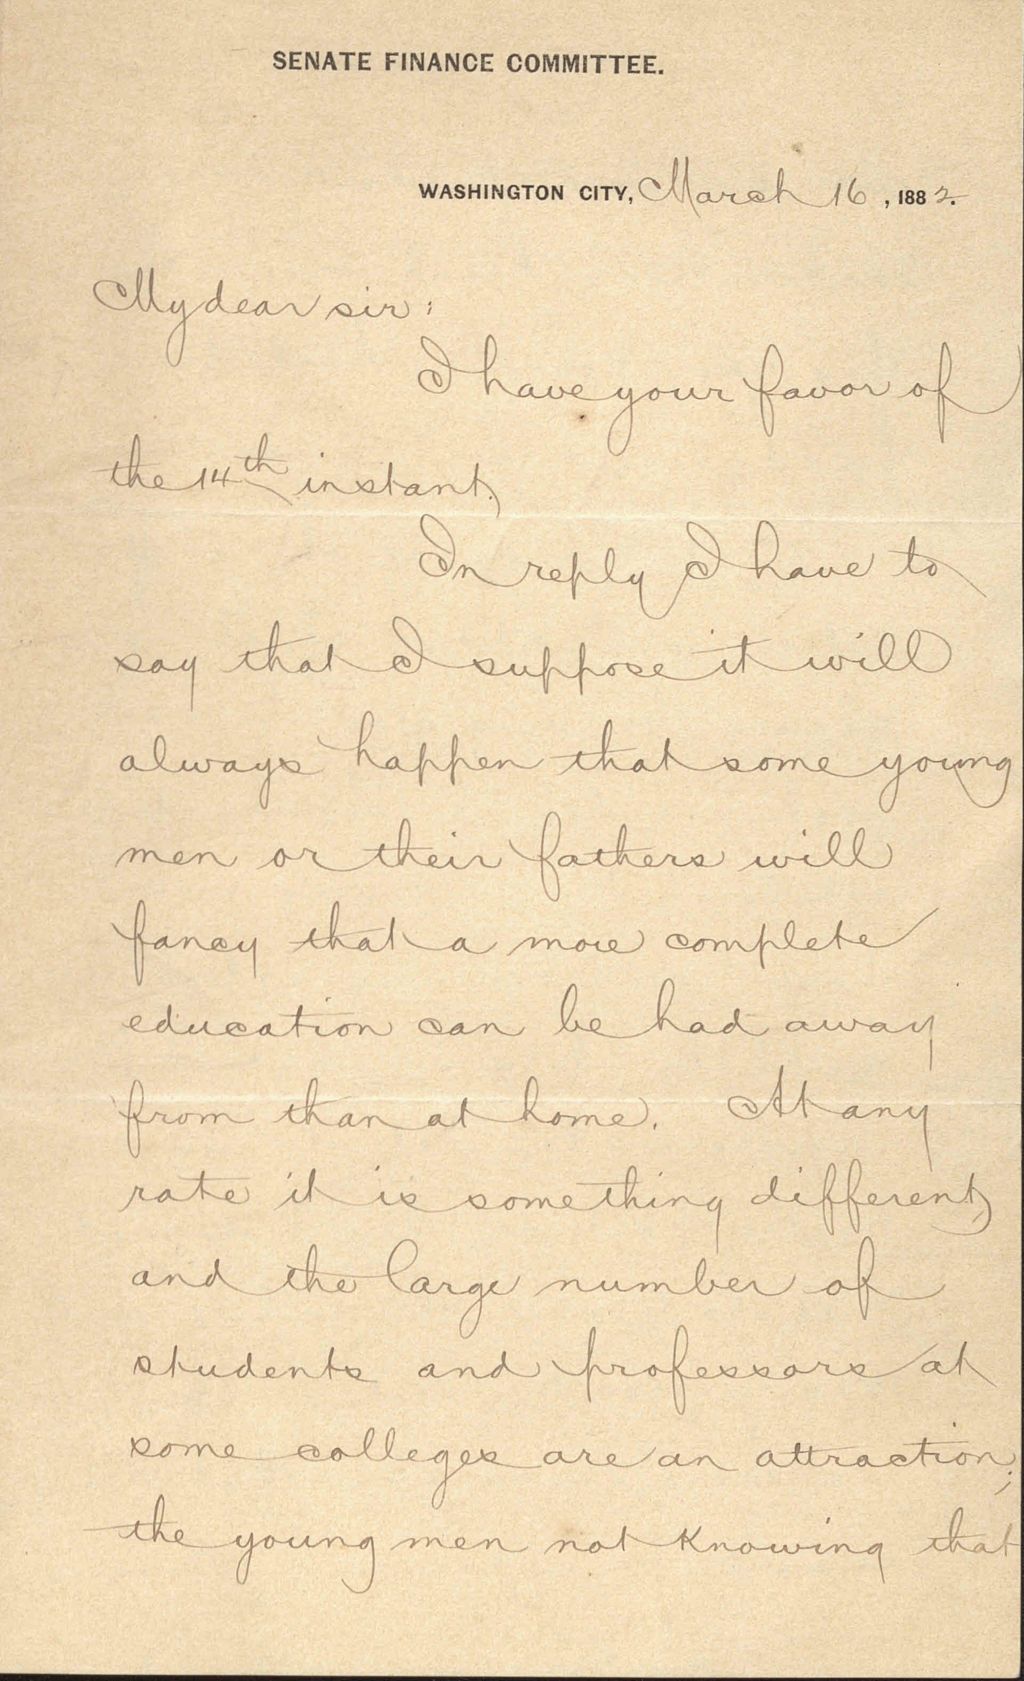 SENATE FINANCE COMMITTEE.
WASHINGTON CITY, March 16, 1882.
My dear sir:
I have your favor of
the 14th instant.
In reply I have to
say that I suppose it will
always happen that some young
men or their fathers will
fancy that a more complete
education can be had away
from than at home. At any
rate it is something different,
and the large number of
students and professors at
some colleges are an attraction;
the young men not knowing that